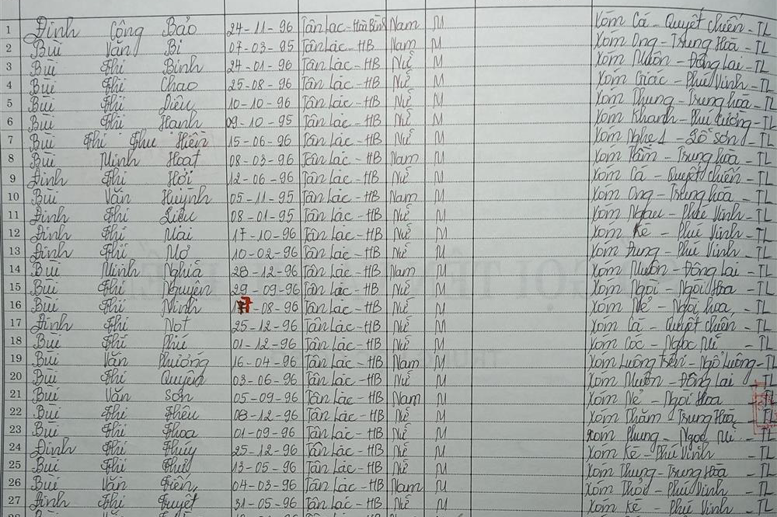 1 Đinh Công Bảo 24-11-96 Tân Lạc-Hòa Bình Nam M Xóm Cá - Quyết chiến - TL
2 Bùi Văn Bi 07-03-95 Tân Lạc-HB Nam M Xóm Ong - Trung Hòa - TL
3 Bùi Thị Bình 24-01-96 Tân Lạc-HB Nữ M Xóm Muôn - Đông Lai - TL
4 Bùi Thị Chao 25-08-96 Tân Lạc-HB Nữ M Xóm Giác - Phú Vinh - TL
5 Bùi Thị Diệu 10-10-96 Tân Lạc-HB Nữ M Xóm Thung - Trung hòa - TL
6 Bùi Thị Hạnh 09-10-95 Tân Lạc-HB Nữ M Xóm Khanh - Phú cường - TL
7 Bùi Thị Thu Hiền 15-06-96 Tân Lạc-HB Nữ M Xóm Nghẹ 1 - sơn - TL
8 Bùi Minh Hoạt 08-03-96 Tân Lạc-HB Nam M Xóm - Trung hòa - TL
9 Đinh Thị Hới 12-06-96 Tân Lạc-HB Nữ M Xóm Cá - Quyết chiến - TL
10 Bùi Văn Huỳnh 05-11-95 Tân Lạc-HB Nam M Xóm Ong - Trung hòa - TL
11 Đinh Thị Liễu 08-01-95 Tân Lạc-HB Nữ M Xóm - Phú Vinh - TL
12 Đinh Thị Mai 17-10-96 Tân Lạc-HB Nữ M Xóm Kè - Phú Vinh - TL
13 Đinh Thị Mơ 10-02-96 Tân Lạc-HB Nữ M Xóm - Phú Vinh - TL
14 Bùi Minh Nghĩa 28-12-96 Tân Lạc-HB Nam M Xóm Muôn - Đông Lai - TL
15 Bùi Thị Nguyên 29-09-96 Tân Lạc-HB Nữ M Xóm Ngòi - Ngòi Hoa - TL
16 Bùi Thị Ninh 17-08-96 Tân Lạc-HB Nữ M Xóm Nẻ - Ngòi hoa - TL
17 Đinh Thị Nọt 25-12-96 Tân Lạc-HB Nữ M Xóm Cá - Quyết chiến - TL
18 Bùi Thị Phú 01-12-96 Tân Lạc-HB Nữ M Xóm Cóc - Ngọc Mĩ - TL
19 Bùi Văn Phương 16-04-96 Tân Lạc-HB Nam M Xóm Luông trên - Ngổ Luông - TL
20 Bùi Thị Quyên 03-06-96 Tân Lạc-HB Nữ M Xóm Muôn - Đông Lai - TL
21 Bùi Văn Sơn 05-09-96 Tân Lạc-HB Nam M Xóm Nẻ - Ngòi Hoa - TL
22 Bùi Thị Thêu 08-12-96 Tân Lạc-HB Nữ M Xóm Thăm - Trung Hòa - TL
23 Bùi Thị Thoa 01-09-96 Tân Lạc-HB Nữ M Xóm - Ngọc Mĩ - TL
24 Đinh Thị Thúy 25-12-96 Tân Lạc-HB Nữ M Xóm Kè - Phú Vinh - TL
25 Bùi Thị 13-05-96 Tân Lạc-HB Nữ M Xóm Thung - Trung Hòa - TL
26 Bùi Văn Tiến 04-03-96 Tân Lạc-HB Nam M Xóm - Phú Vinh - TL
27 Đinh Thị Tuyết 31-05-96 Tân Lạc-HB Nữ M Xóm Kè - Phú Vinh - TL